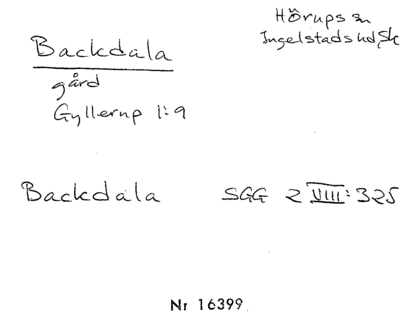 Hörups sn
Ingelstads hd, Sk
Backdala
gård
Gyllerup 1:9
Backdala SGG 2 VIII: 325
Nr 16399